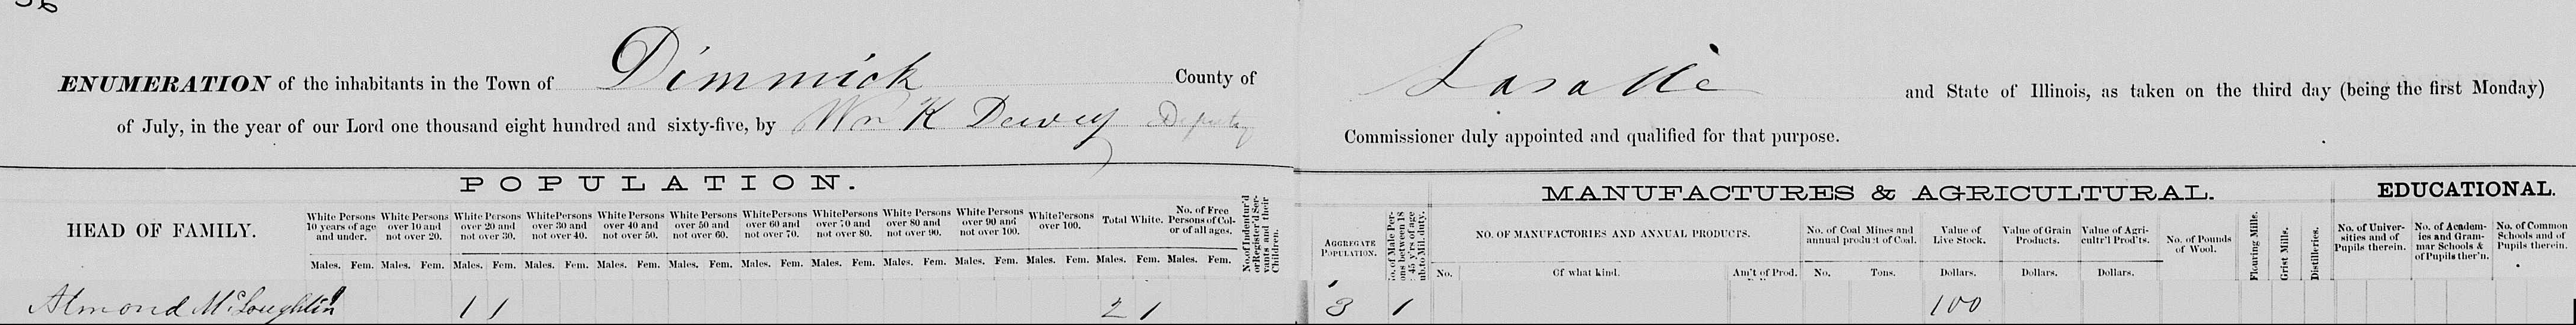 56
ENUMERATION of the inhabitants in the Town of Dimmick County of Lasalle and State of Illinois, as taken on the third day (being the first Monday)
of July, in the year of our Lord one thousand eight hundred and sixty-five, by Wm K Dewey Deputy Commissioner duly appointed and qualified for that purpose.
POPULATION. MANUFACTURES & AGRICULTURAL. EDUCATIONAL.
HEAD OF FAMILY.
White Persons 10 years of age and under.
White Persons over 10 and not over 20.
White Persons over 20 and not over 30.
White Persons over 30 and not over 40.
White Persons over 40 and not over 50.
White Persons over 50 and not over 60.
White Persons over 60 and not over 70.
White Persons over 70 and not over 80.
White Persons over 80 and not over 90.
White Persons over 90 and not over 100.
White Persons over 100.
Total White.
No. of Free Persons of Color of all ages.
No. of Indentur'd or Register'd Servants and their Children.
AGGREGATE POPULATION.
No. of Male Persons between 18 & 45 y'rs of age sub. to Mil. duty.
NO. OF MANUFACTORIES AND ANNUAL PRODUCTS.
No. of Coal Mines and annual product of Coal.
Value of Live Stock.
Value of Grain Products.
Value of Agricultur'l Prod'ts.
No. of Pounds of Wool.
Flouring Mills.
Grist Mills.
Distilleries.
No. of Universities and of Pupils therein.
No. of Academies and Grammar Schools & of Pupils ther'n.
No. of Common Schools and of Pupils therein.
Males. Fem. Males. Fem. Males. Fem. Males. Fem. Males. Fem. Males. Fem. Males. Fem. Males. Fem. Males. Fem. Males. Fem. Males. Fem. Males. Fem. Males. Fem. No. Of what kind. Am't of Prod. No. Tons. Dollars. Dollars. Dollars.
Almond McLoughlin 1 1 2 1 3 1 100